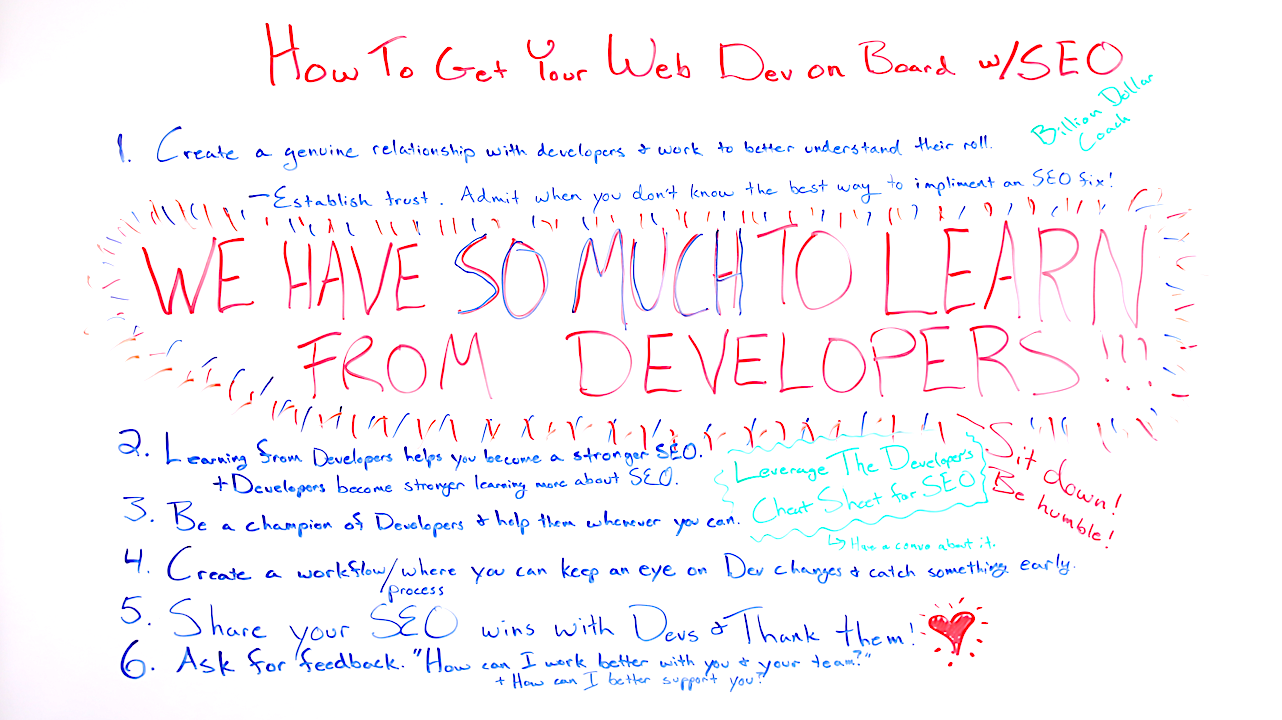 How To Get Your Web Dev on Board w/SEO
Billion Dollar
Coach
1. Create a genuine relationship with developers & work to better understand their roll.
– Establish trust. Admit when you don't know the best way to impliment an SEO fix!
WE HAVE SO MUCH TO LEARN
FROM DEVELOPERS!!!
2. Learning from Developers helps you become a stronger SEO.
+ Developers become stronger learning more about SEO.
Leverage The Developer's
Cheat Sheet for SEO
↳ Have a convo about it.
Sit down!
Be humble!
3. Be a champion of Developers & help them whenever you can.
4. Create a workflow/where you can keep an eye on Dev changes & catch something early.
process
5. Share your SEO wins with Devs & Thank them!
6. Ask for feedback. "How can I work better with you & your team?"
+ How can I better support you?